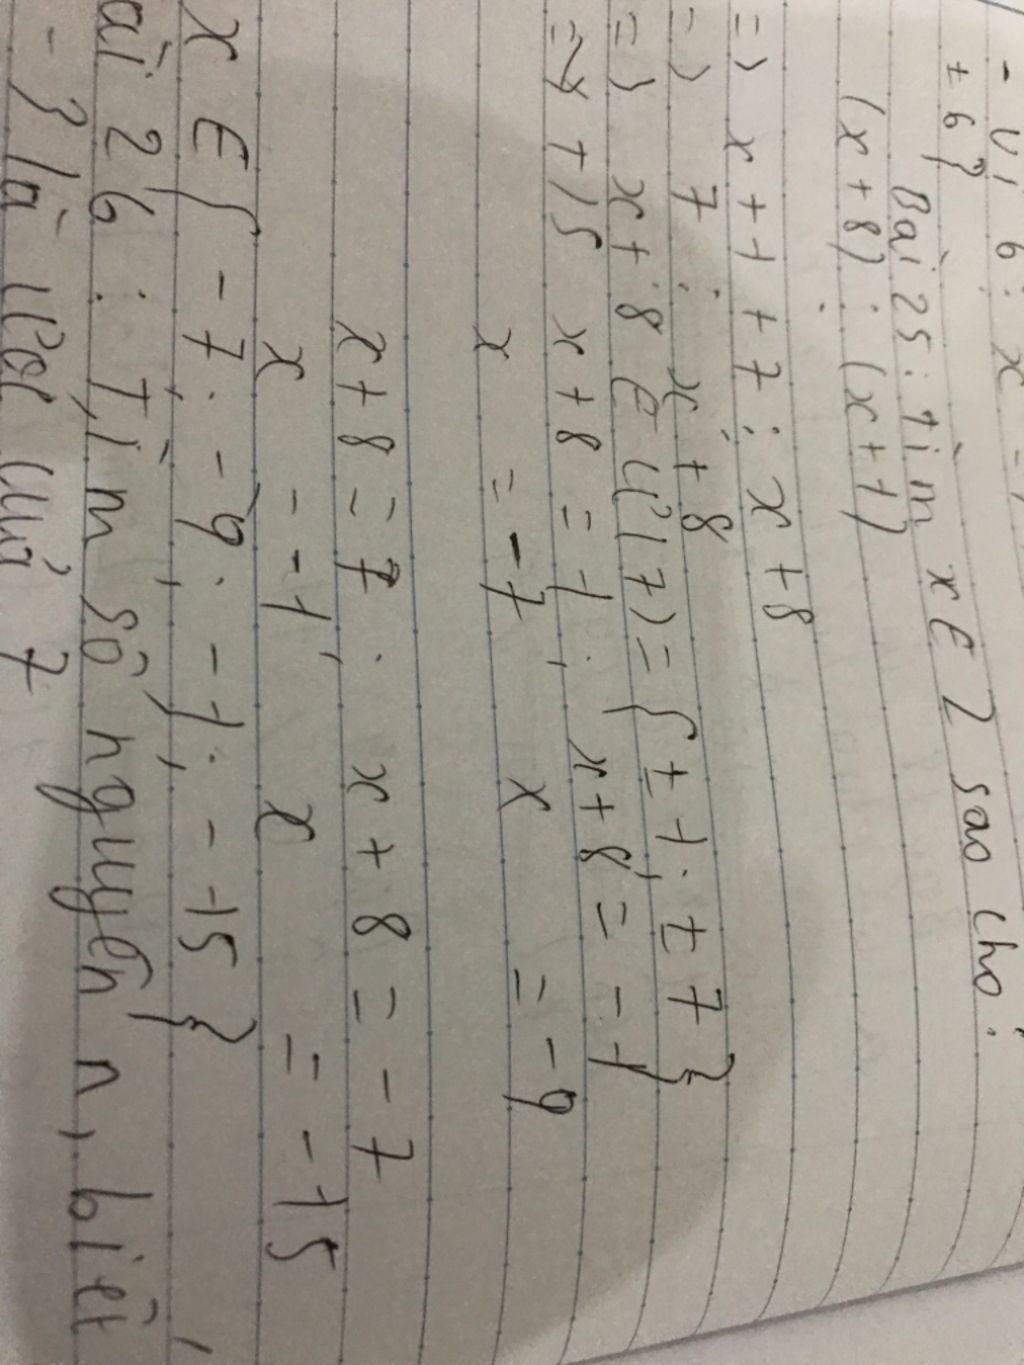 - Vì 6 ⋮ x -
± 6 }
Bài 25: tìm x ∈ Z sao cho:
(x + 8) ⋮ (x + 1)
=> x + 1 + 7 ⋮ x + 8
=> 7 ⋮ x + 8
=> x + 8 ∈ Ư(7) = { ± 1; ± 7 }
+ 15 x + 8 = 1; x + 8 = - 1
x = - 7 x = - 9
x + 8 = 7 ; x + 8 = - 7
x - - 1, x = - 15
x ∈ { - 7; - 9; - 1; - 15 }
ài 26 : Tìm số nguyên n, biết
- 3 là ước của 7